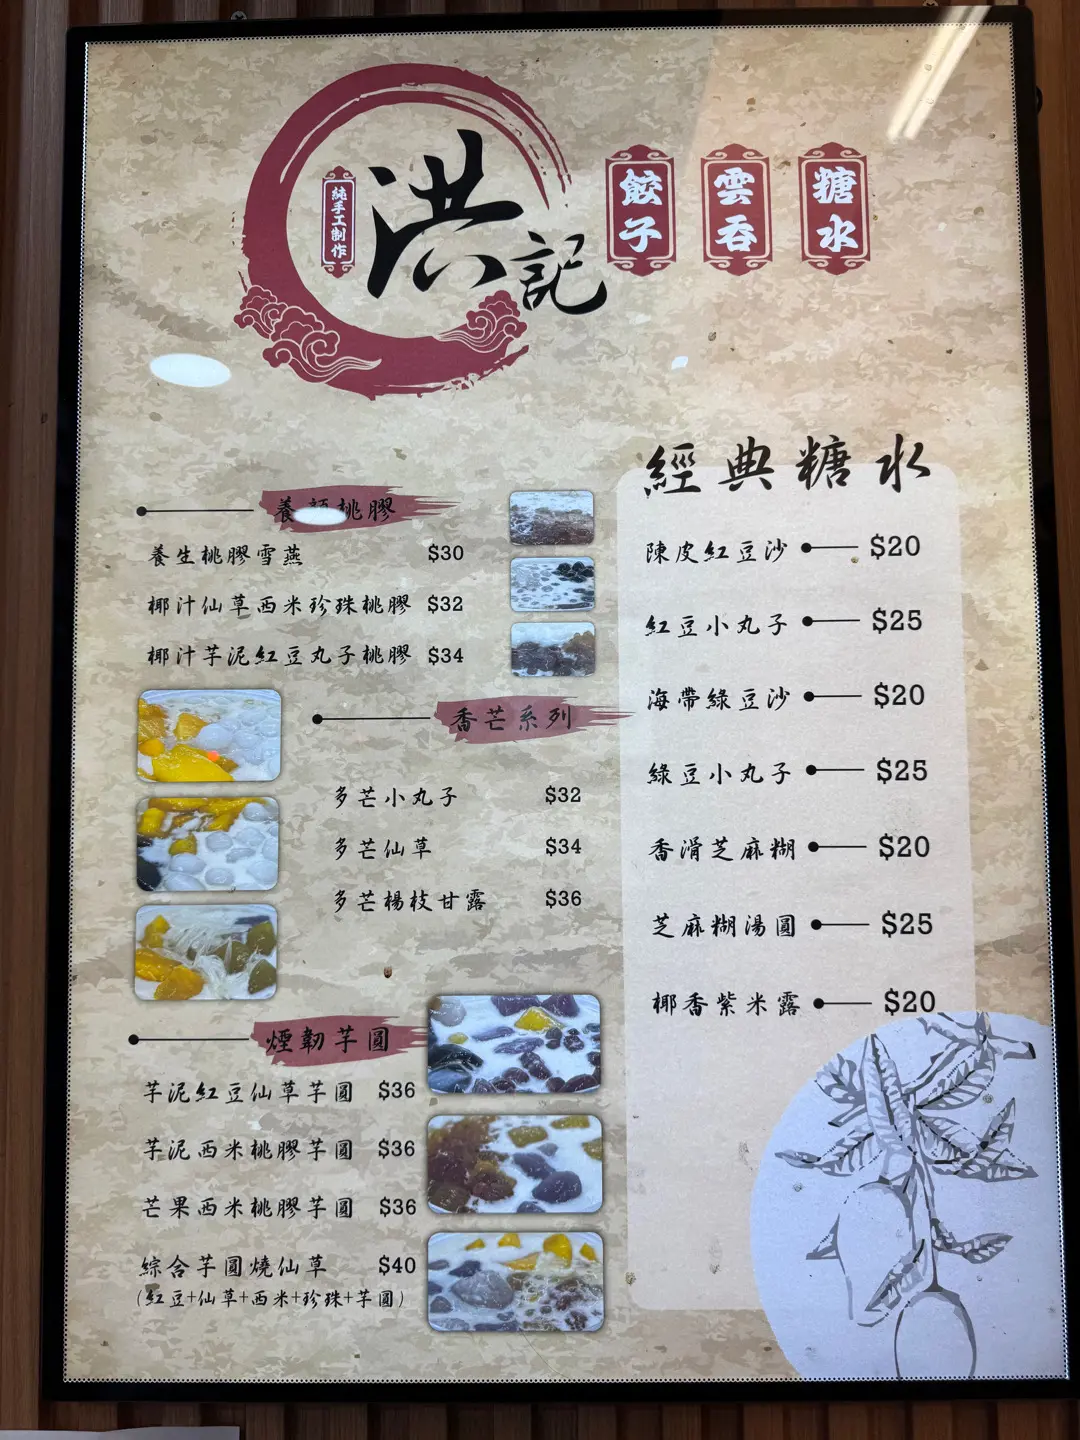 純手工制作
洪記
餃子
雲吞
糖水
養顏桃膠
養生桃膠雪燕 $30
椰汁仙草西米珍珠桃膠 $32
椰汁芋泥紅豆丸子桃膠 $34
香芒系列
多芒小丸子 $32
多芒仙草 $34
多芒楊枝甘露 $36
煙韌芋圓
芋泥紅豆仙草芋圓 $36
芋泥西米桃膠芋圓 $36
芒果西米桃膠芋圓 $36
綜合芋圓燒仙草 $40
(紅豆+仙草+西米+珍珠+芋圓)
經典糖水
陳皮紅豆沙 $20
紅豆小丸子 $25
海帶綠豆沙 $20
綠豆小丸子 $25
香滑芝麻糊 $20
芝麻糊湯圓 $25
椰香紫米露 $20